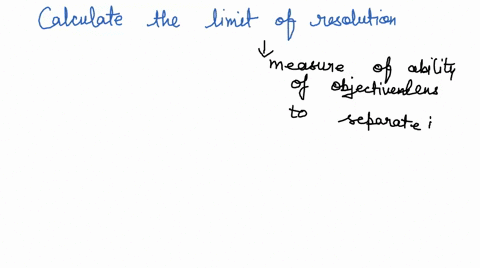 Calculate the limit of resolution
↓
measure of ability
of objectivenlens
to separate i